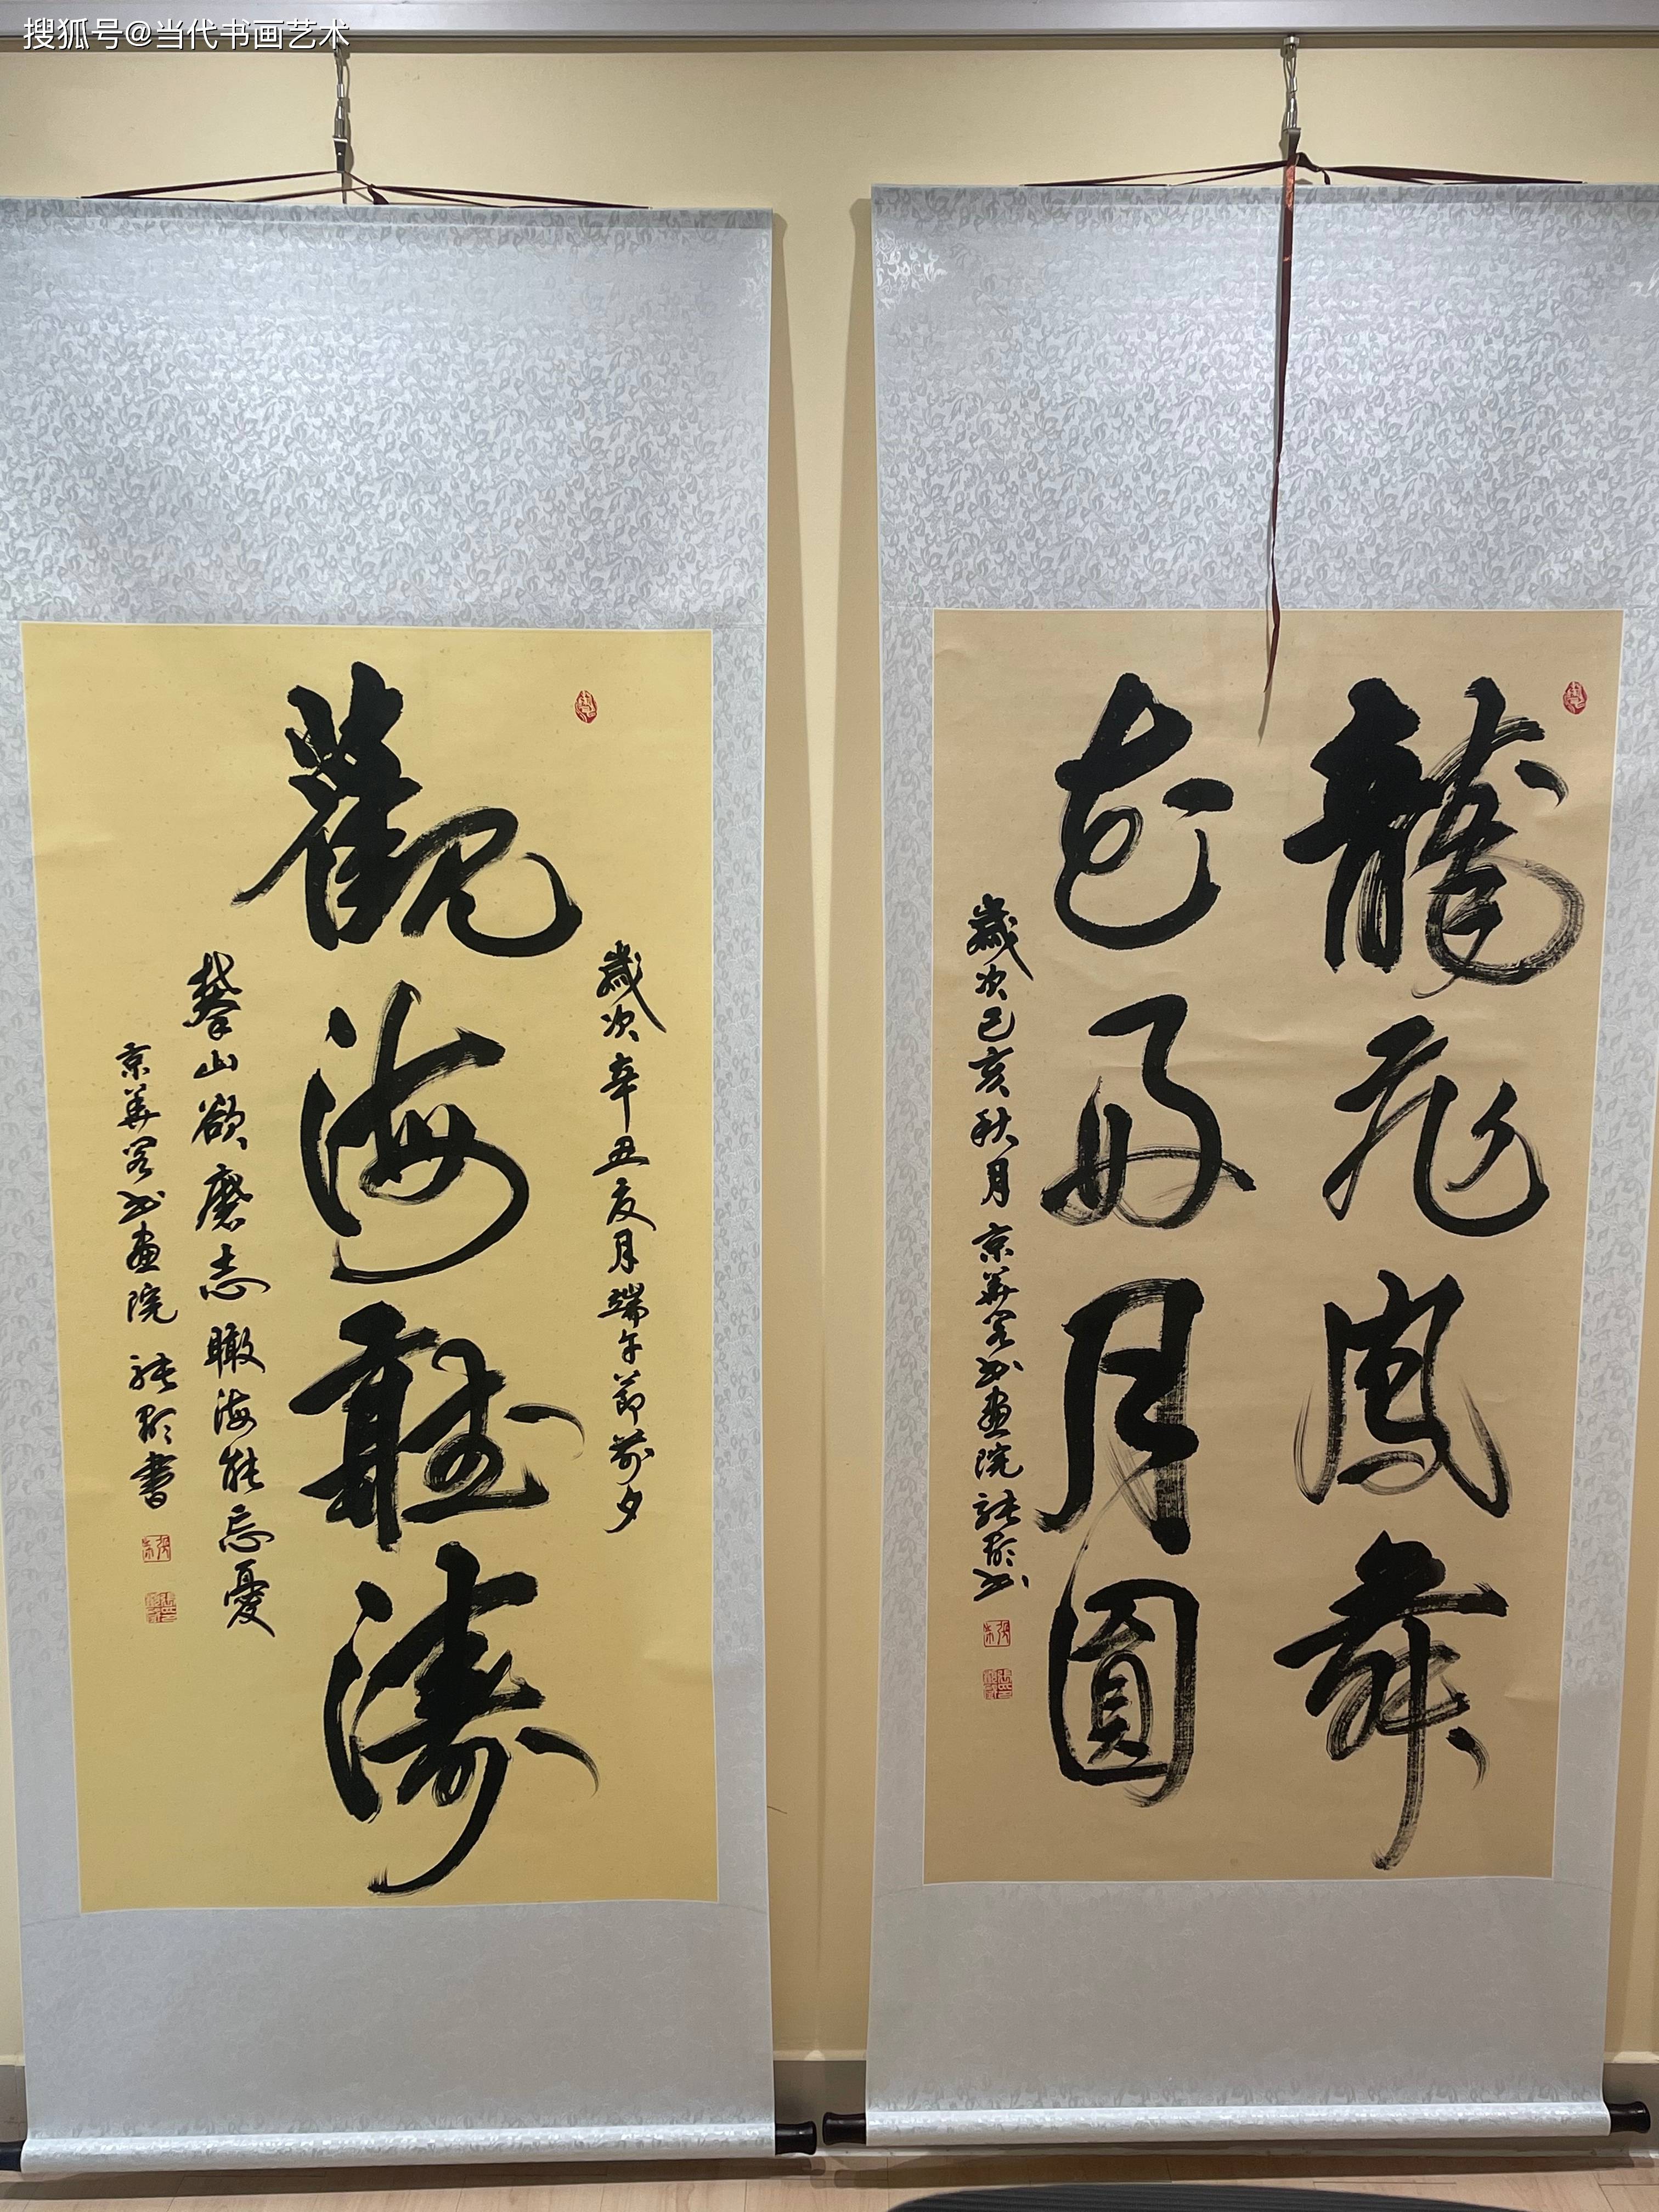 搜狐号@当代书画艺术
龍飛鳳舞
花好月圓
歲次己亥秋月京華客书畫院張彤书
歲次辛丑夏月端午節前夕
觀海聽濤
攀山欲磨志瞰海能忘憂
京華客书畫院張彤書